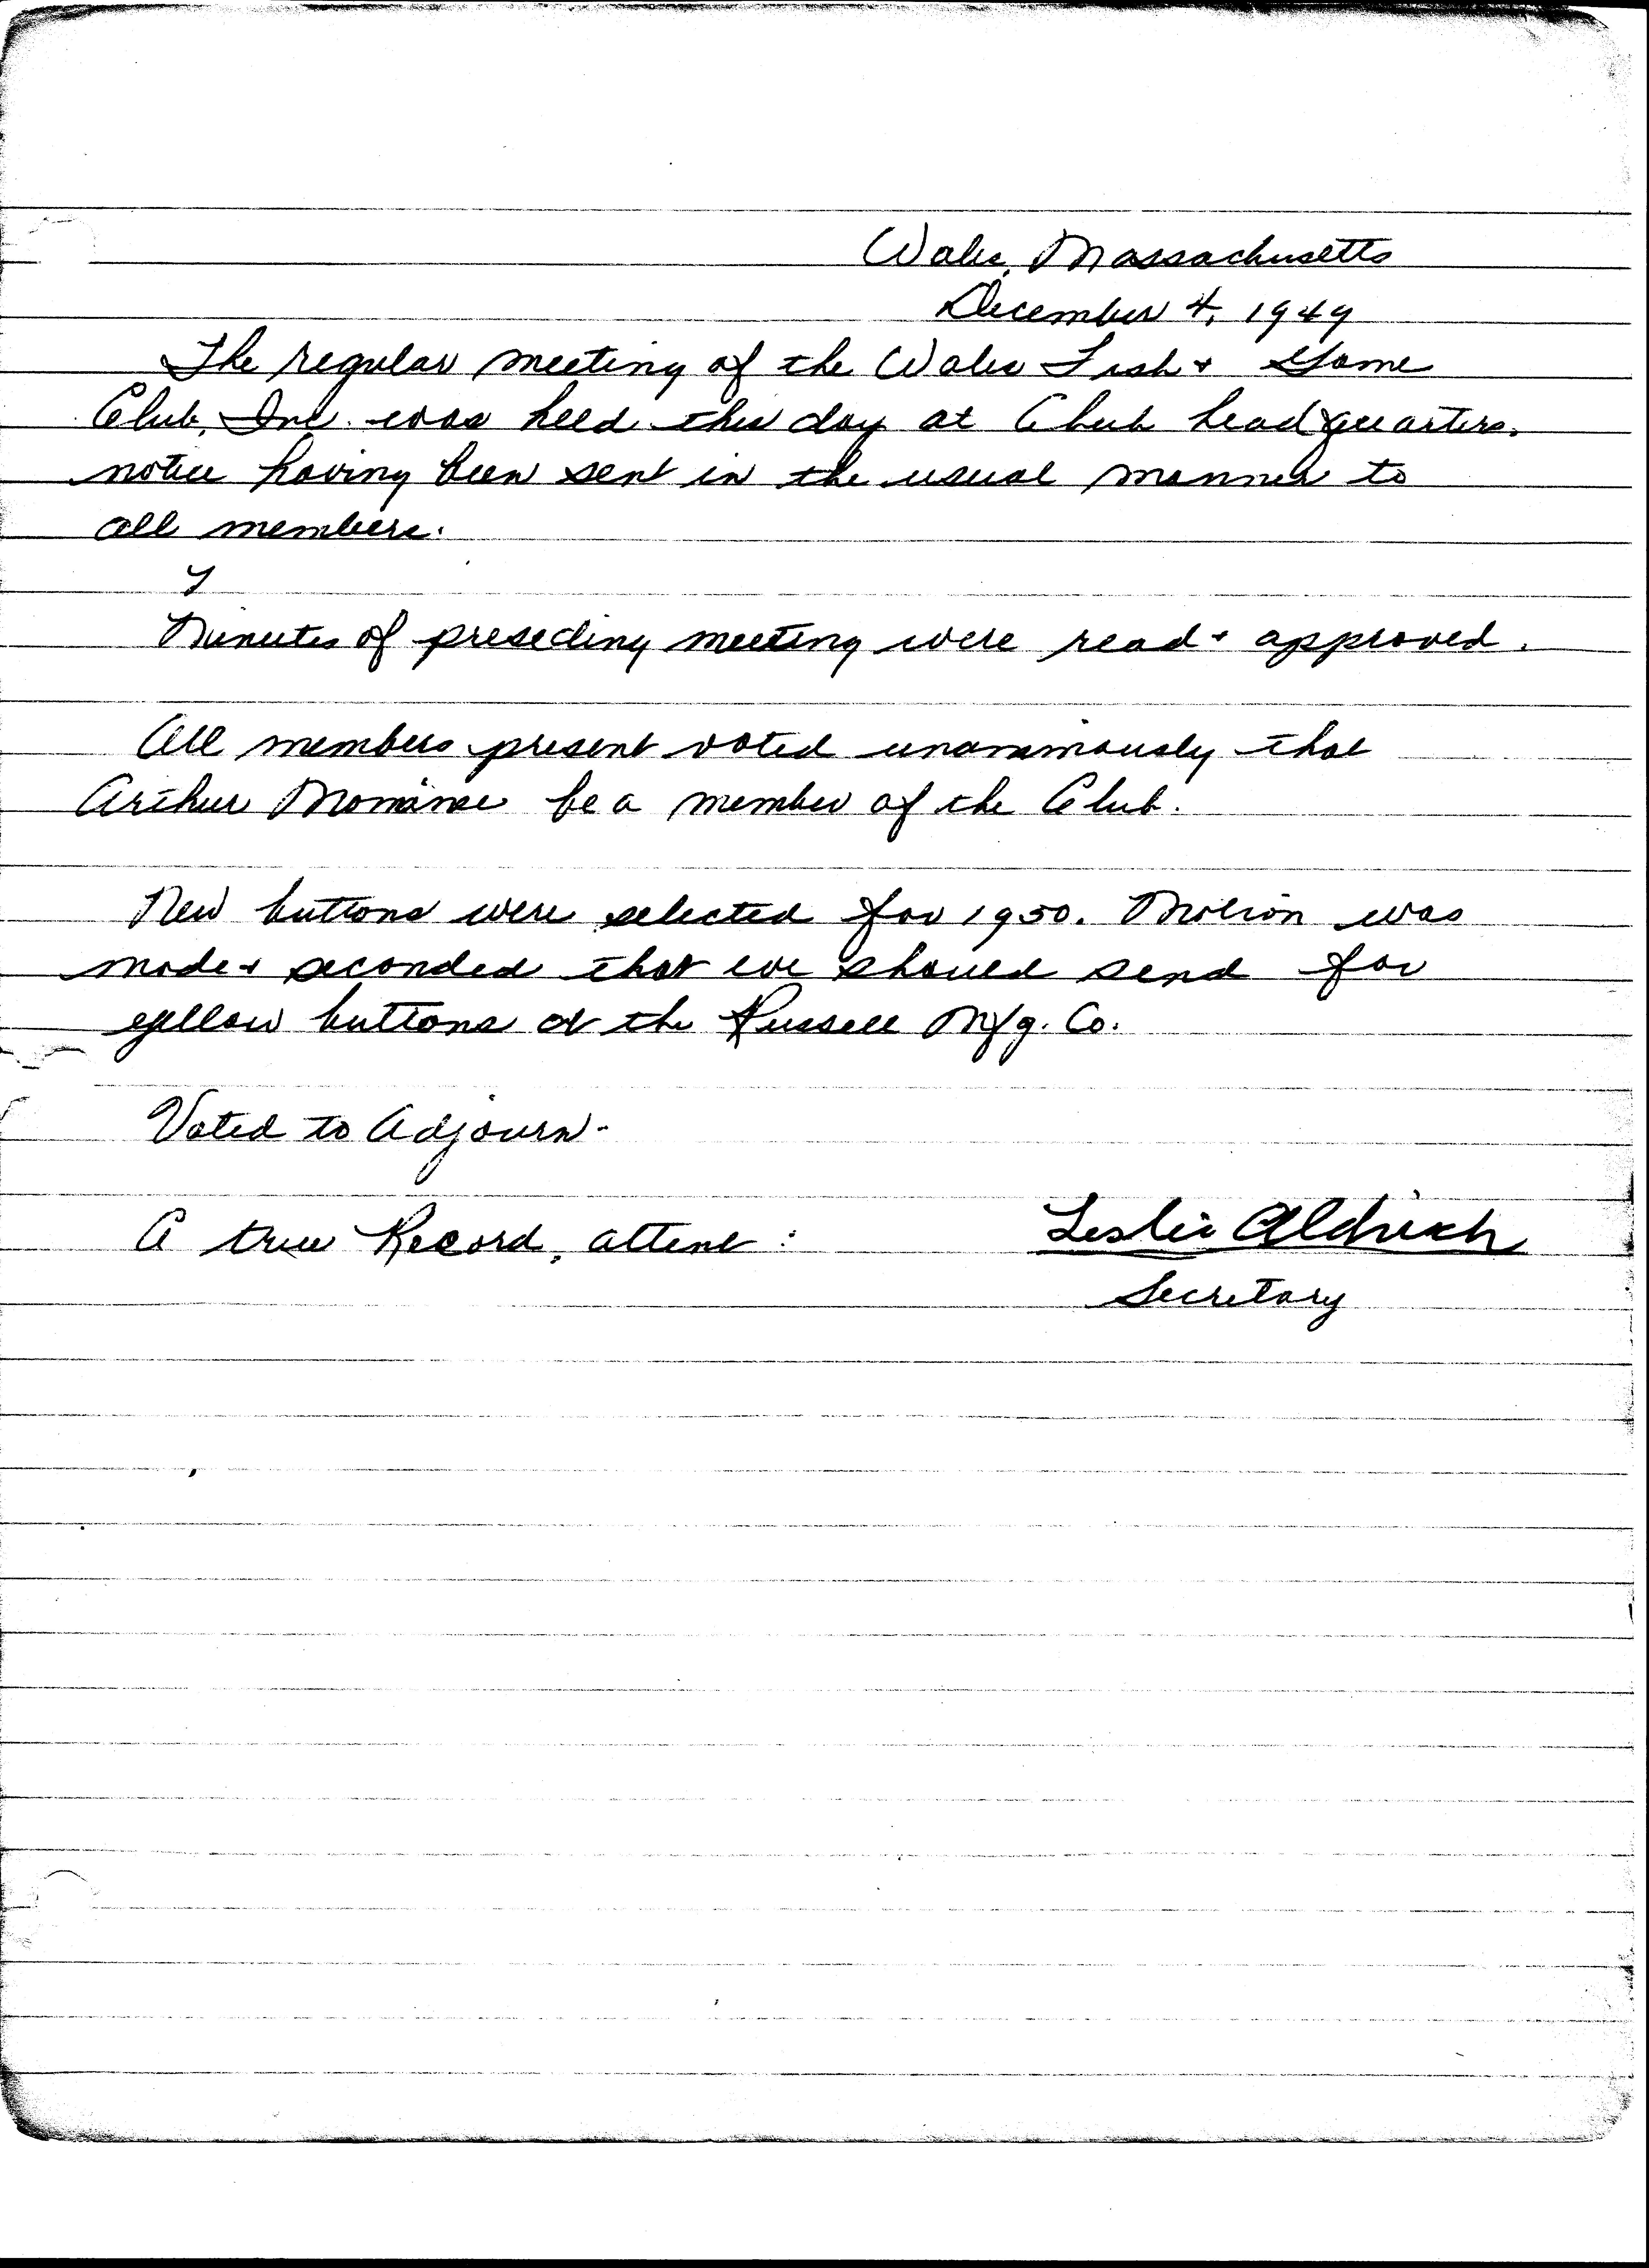 Wales, Massachusetts
December 4, 1949
The regular meeting of the Wales Fish & Game
Club, Inc. was held this day at Club headquarters.
notice having been sent in the usual manner to
all members.
Minutes of preseding meeting were read & approved.
All members present voted unanimously that
Arthur be a member of the Club.
New buttons were selected for 1950. Motion was
made & seconded that we should send for
yellow buttons at the Russell Mfg. Co.
Voted to Adjourn.
A true Record, attest:
Leslie Aldrich
Secretary